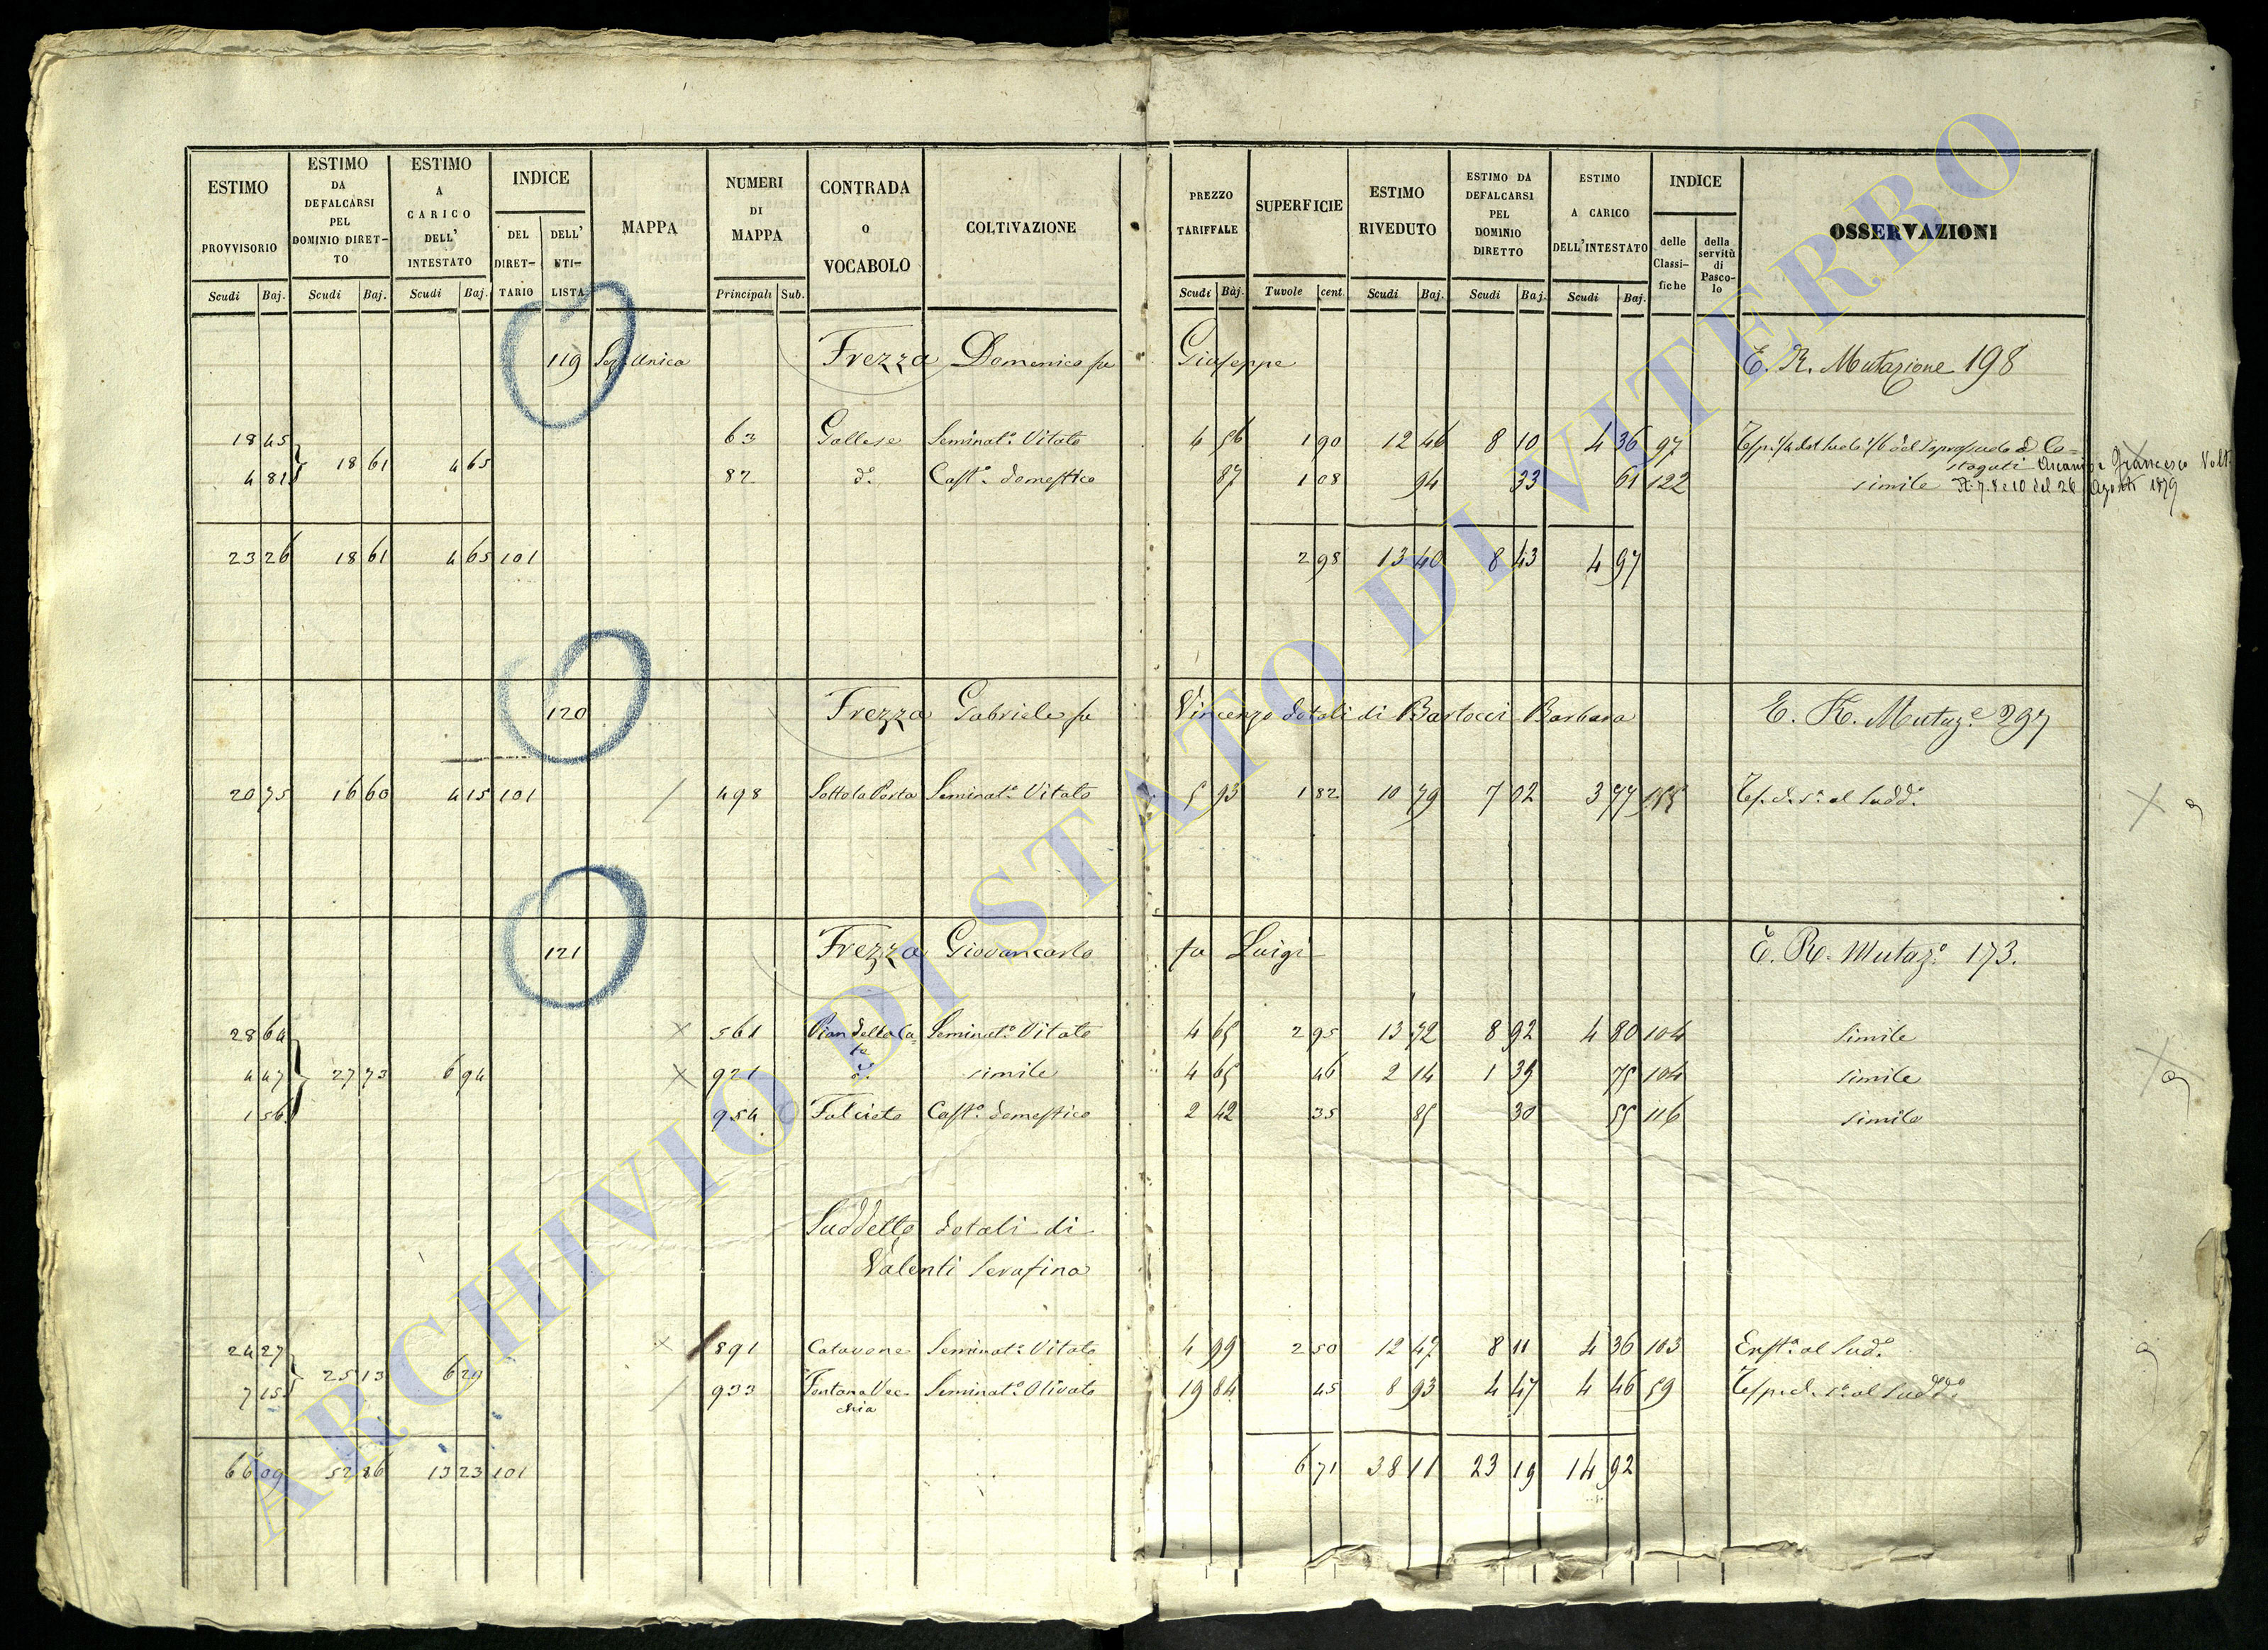 ESTIMO PROVVISORIO Scudi Baj.
ESTIMO DA DEFALCARSI PEL DOMINIO DIRET- TO Scudi Baj.
ESTIMO A CARICO DELL' INTESTATO Scudi Baj.
INDICE DEL DIRET- TARIO DELL' UTI- LISTA
MAPPA
NUMERI DI MAPPA Principali Sub.
CONTRADA O VOCABOLO
COLTIVAZIONE
PREZZO TARIFFALE Scudi Baj.
SUPERFICIE Tavole cent.
ESTIMO RIVEDUTO Scudi Baj.
ESTIMO DA DEFALCARSI PEL DOMINIO DIRETTO Scudi Baj.
ESTIMO A CARICO DELL'INTESTATO Scudi Baj.
INDICE delle Classi- fiche della servitù di Pasco- lo
OSSERVAZIONI
119 Sez. Unica Frezza Domenico fu Giuseppe E. R. Mutazione 198
18 45 63 Gallese Seminat.o Vitato 4 56 1 90 12 46 8 10 4 36 97
18 61 4 65
4 81 82 d.o Cast.o domestico 87 1 08 94 33 61 122 simile
Francesco
N. 7. 8 e 10 del 26 Agosto 1879
23 26 18 61 4 65 101 2 98 13 40 8 43 4 97
120 Frezza Gabriele fu Vincenzo dotali di Bartocci Barbara E. R. Mutaz.e 297
20 75 16 60 4 15 101 498 Sotto la Porta Seminat.o Vitato 5 93 1 82 10 79 7 02 3 77 al Sudd.o
121 Frezza Giovancarlo fu Luigi E. R. Mutaz.e 173.
28 64 × 561 Pian della Ca- Seminat.o Vitato 4 65 2 95 13 72 8 92 4 80 104 simile
4 47 27 73 6 94 × 921 d.o simile 4 65 46 2 14 1 39 75 104 simile
1 56 954 Falcieto Cast.o domestico 2 42 35 85 30 55 116 simile
Suddetto dotali di
Valenti Serafina
24 27 × 891 Catavone Seminat.o Vitato 4 99 2 50 12 47 8 11 4 36 103 Enft.a al Sud.o
25 13 6 29
7 15 933 Fontana Vec- Seminat.o Olivato 19 84 45 8 93 4 47 4 46 59 al Sudd.o
chia
66 09 52 86 13 23 101 6 71 38 11 23 19 14 92
ARCHIVIO DI STATO DI VITERBO